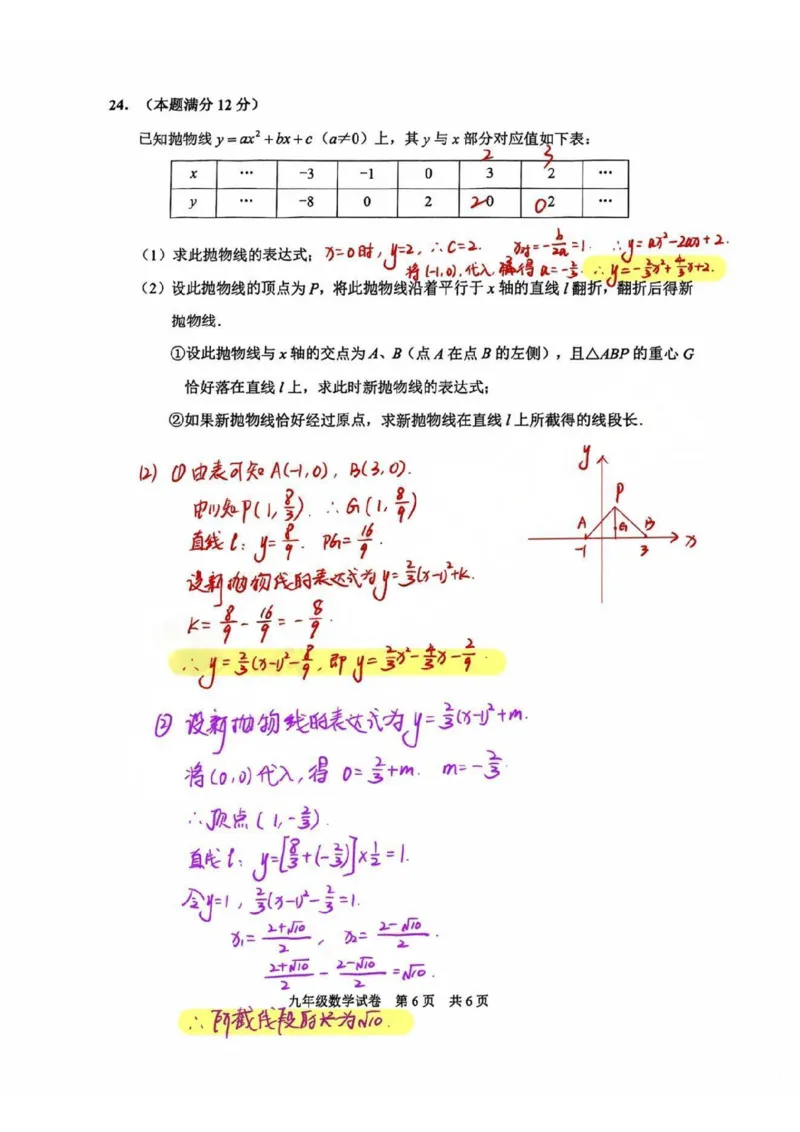 24. （本题满分 12 分）
已知抛物线 y=ax²+bx+c（a≠0）上，其 y 与 x 部分对应值如下表：
2 3
x … −3 −1 0 3 2 …
y … −8 0 2 20 02 …
（1）求此抛物线的表达式； x=0时，y=2，∴C=2. x对=-b/2a=1. ∴y=ax²-2ax+2.
将(-1,0)，代入 解得 a=-2/3. ∴y=-2/3x²+4/3x+2.
（2）设此抛物线的顶点为 P，将此抛物线沿着平行于 x 轴的直线 l 翻折，翻折后得新
抛物线．
①设此抛物线与 x 轴的交点为 A、B（点 A 在点 B 的左侧），且△ABP 的重心 G
恰好落在直线 l 上，求此时新抛物线的表达式；
②如果新抛物线恰好经过原点，求新抛物线在直线 l 上所截得的线段长．
(2) ① 由表可知 A(-1,0)，B(3,0).
由(1)知P(1,8/3). ∴G(1,8/9)
直线l：y=8/9. PG=16/9.
设新抛物线的表达式为y=2/3(x-1)²+k.
k=8/9-16/9=-8/9.
∴y=2/3(x-1)²-8/9，即y=2/3x²-4/3x-2/9.
y
P
A G B
-1 3 x
② 设新抛物线的表达式为y=2/3(x-1)²+m.
将(0,0)代入，得 0=2/3+m. m=-2/3.
∴顶点(1,-2/3).
直线l：y=[8/3+(-2/3)]×1/2=1.
令y=1，2/3(x-1)²-2/3=1.
x₁=2+√10/2，x₂=2-√10/2.
2+√10/2-2-√10/2=√10.
九年级数学试卷 第 6 页 共 6 页
∴所截线段的长为√10.